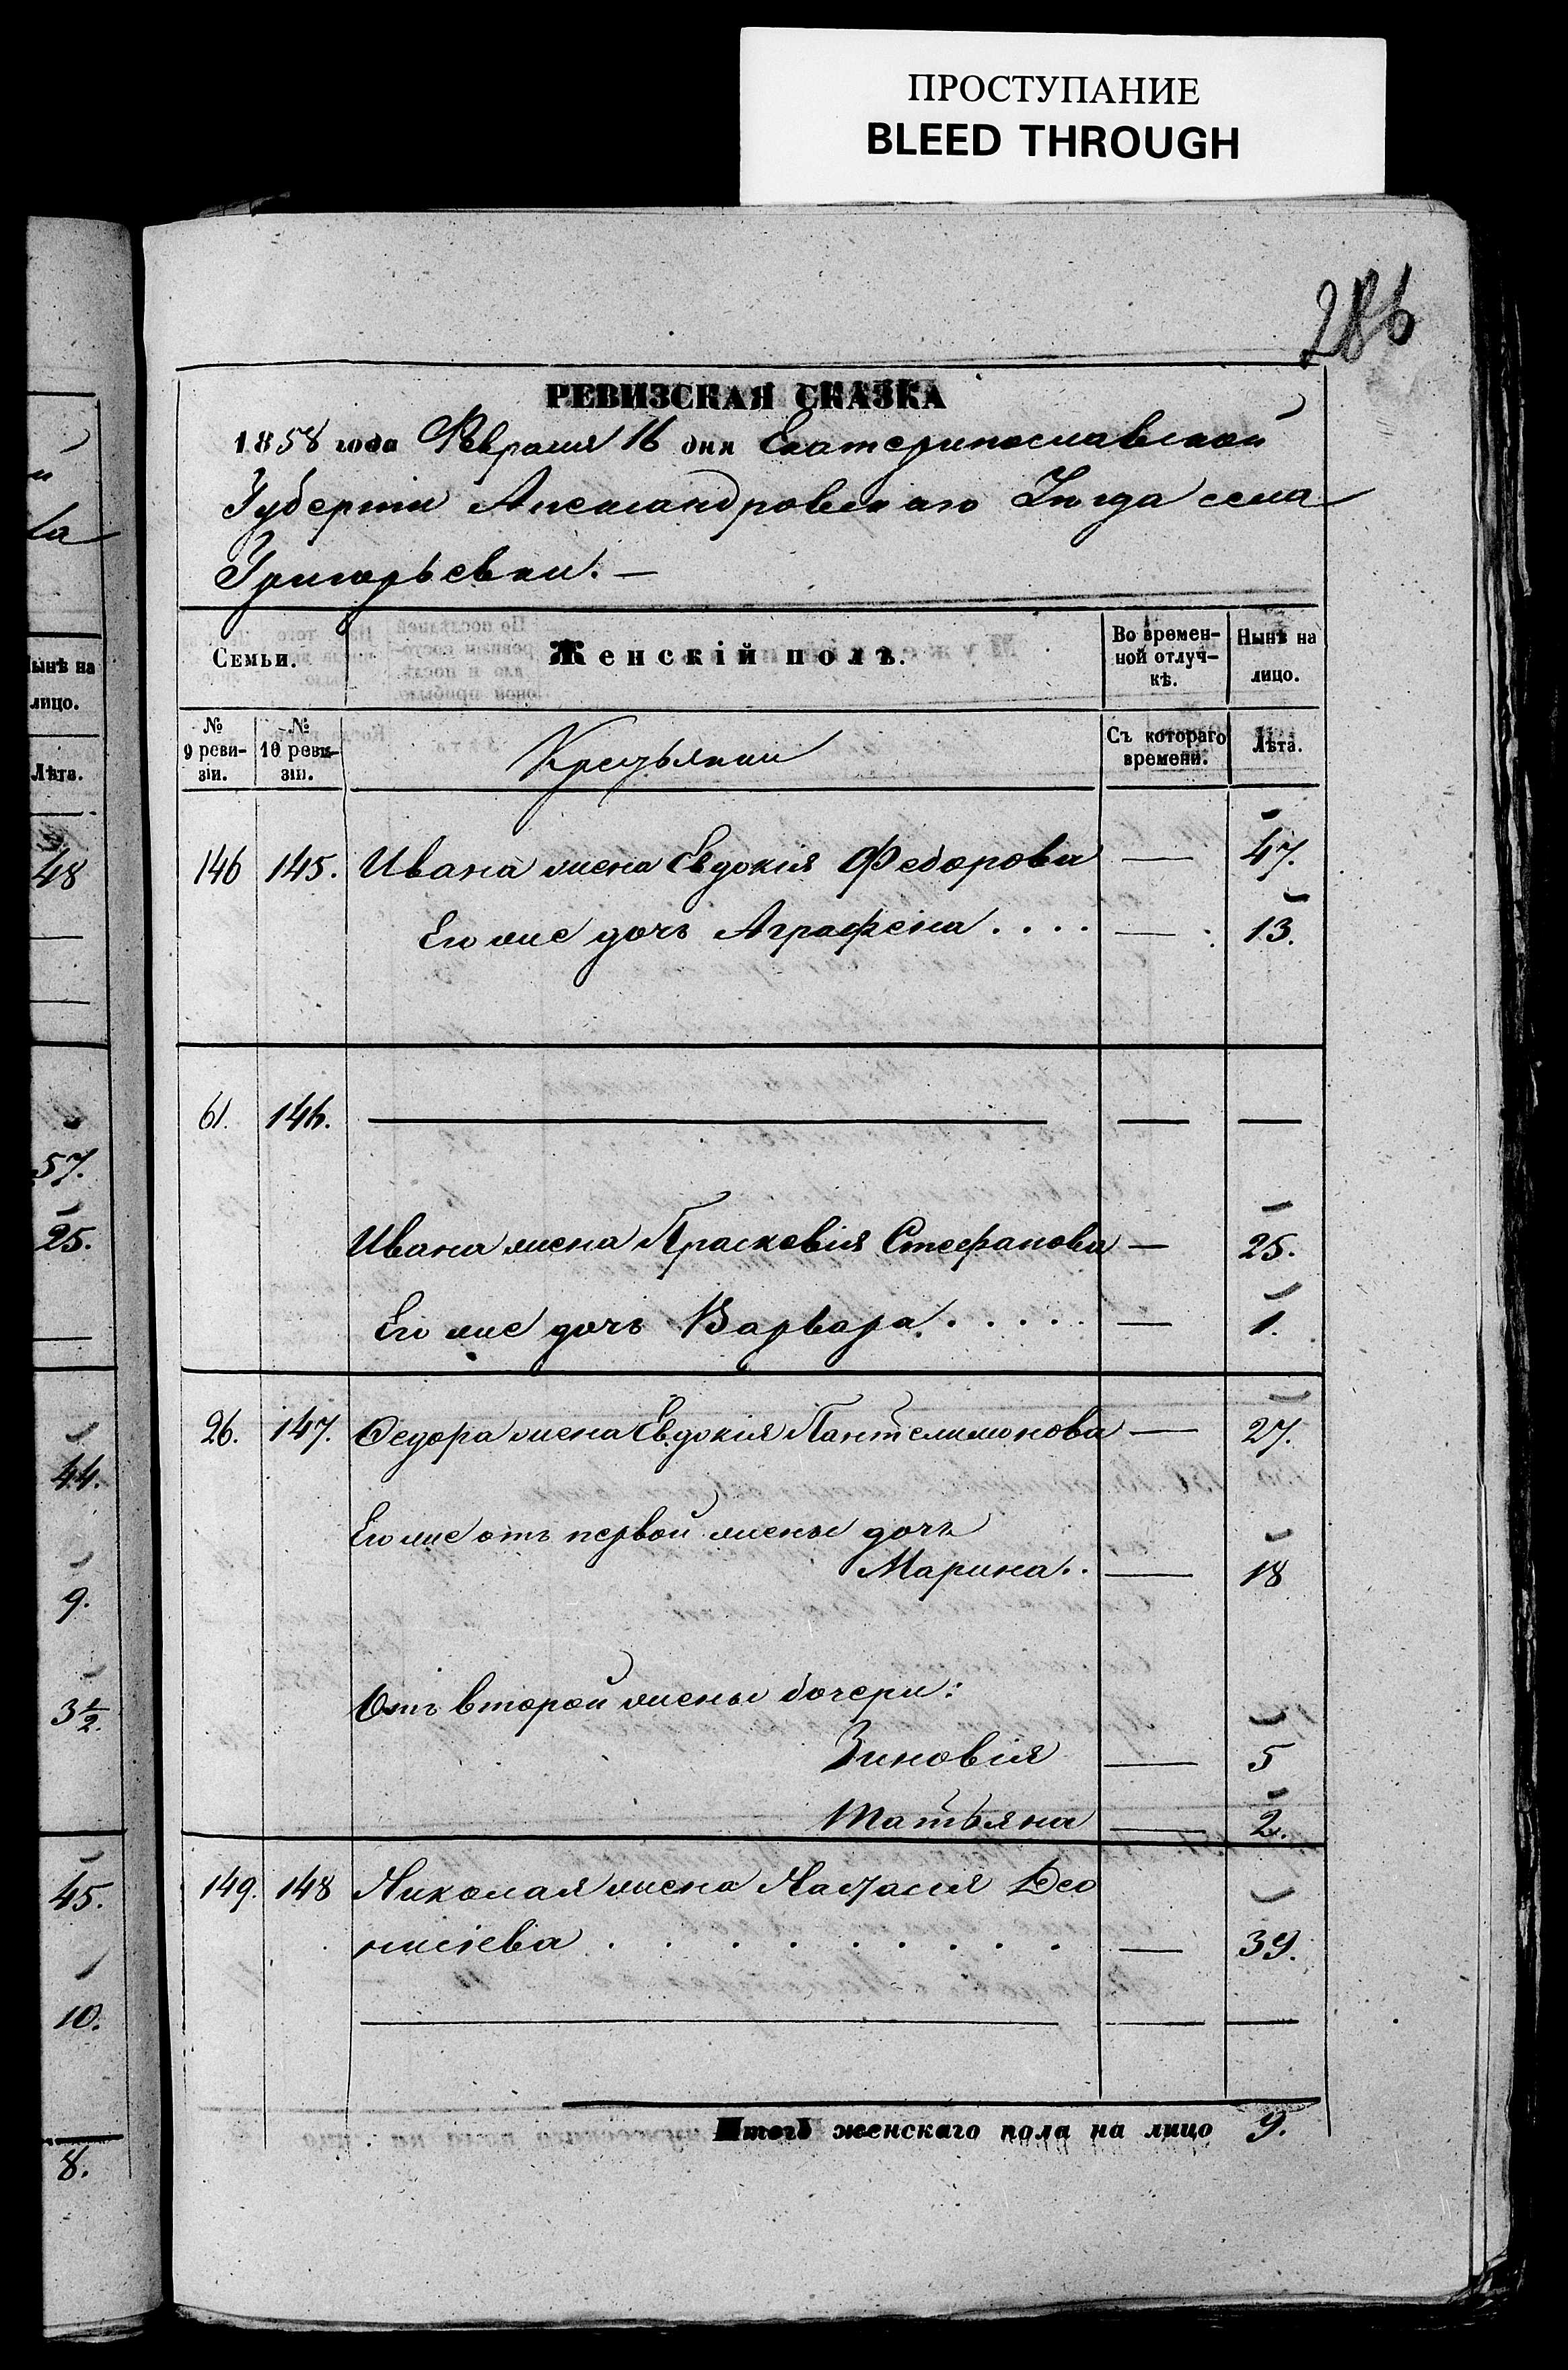 ПРОСТУПАНИЕ
BLEED THROUGH
286
РЕВИЗСКАЯ СКАЗКА
1858 года Февраля 16 дня Екатеринославской
Губерніи Александровскаго Уѣзда села
Григорьевки. —
Семьи. Женскій полъ. Во времен-
ной отлуч-
кѣ. Нынѣ на
лицо.
№
9 реви-
зіи. №
10 реви-
зіи. Крестьянки Съ котораго
времени. Лѣта.
146 145. Ивана жена Евдокія Федорова — 47.
Его же дочь Аграфена . . . . — 13.
61. 146. — — —
Ивана жена Прасковія Стефанова — 25.
Его же дочь Варвара . . . . . — 1.
26. 147. Федора жена Евдокія Пантелимонова — 27.
Его же отъ первой жены дочь
Марина . . — 18
Отъ второй жены дочери:
Зиновія — 5
Татьяна — 2.
149. 148 Николая жена Настасія Део
нисіева . . . . . . . . — 39.
— — —
Итогъ женскаго пола на лицо 9.
ынѣ на
лицо.
Лѣта.
48
57.
25.
44.
9.
3½.
45.
10.
8.